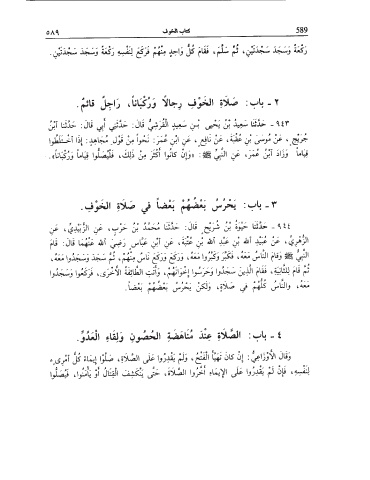 ٥٨٩ كتاب الخوف 589
رَكْعَةً وَسَجَدَ سَجْدَتَيْنِ، ثُمَّ سَلَّمَ، فَقَامَ كُلُّ وَاحِدٍ مِنْهُمْ فَرَكَعَ لِنَفْسِهِ رَكْعَةً وَسَجَدَ سَجْدَتَيْنِ.
٢ - باب: صَلَاةِ الْخَوْفِ رِجالاً وَرُكْبَاناً، رَاجِلٌ قائمٌ.
٩٤٣ - حَدَّثَنَا سَعِيدُ بْنُ يَحْيَى بْنِ سَعِيدٍ الْقُرَشِيُّ قَالَ: حَدَّثَنِي أَبِي قَالَ: حَدَّثَنَا ابْنُ
جُرَيْجٍ، عَنْ مُوسَى بْنِ عُقْبَةَ، عَنْ نَافِعٍ، عَنِ ابْنِ عُمَرَ: نَحْواً مِنْ قَوْلِ مُجَاهِدٍ: إِذَا اخْتَلَطُوا
قِيَاماً وَزَادَ ابْنُ عُمَرَ، عَنِ النَّبِيِّ ﷺ: «وَإِنْ كَانُوا أَكْثَرَ مِنْ ذٰلِكَ، فَلْيُصَلُّوا قِيَاماً وَرُكْبَاناً».
٣ - باب: يَحْرُسُ بَعْضُهُمْ بَعْضاً في صَلَاةِ الْخَوْفِ.
٩٤٤ - حَدَّثَنَا حَيْوَةُ بْنُ شُرَيْحٍ قَالَ: حَدَّثَنَا مُحَمَّدُ بْنُ حَرْبٍ، عَنِ الزُّبَيْدِيِّ، عَنِ
الزُّهْرِيِّ، عَنْ عُبَيْدِ اللهِ بْنِ عَبْدِ اللهِ بْنِ عُتْبَةَ، عَنِ ابْنِ عَبَّاسٍ رَضِيَ اللهُ عَنْهُمَا قَالَ: قَامَ
النَّبِيُّ ﷺ وَقَامَ النَّاسُ مَعَهُ، فَكَبَّرَ وَكَبَّرُوا مَعَهُ، وَرَكَعَ وَرَكَعَ نَاسٌ مِنْهُمْ، ثُمَّ سَجَدَ وَسَجَدُوا مَعَهُ،
ثُمَّ قَامَ لِلثَّانِيَةِ، فَقَامَ الَّذِينَ سَجَدُوا وَحَرَسُوا إِخْوَانَهُمْ، وَأَتَتِ الطَّائِفَةُ الْأُخْرَى، فَرَكَعُوا وَسَجَدُوا
مَعَهُ، وَالنَّاسُ كُلُّهُمْ فِي صَلَاةٍ، وَلٰكِنْ يَحْرُسُ بَعْضُهُمْ بَعْضاً.
٤ - باب: الصَّلَاةِ عِنْدَ مُنَاهَضَةِ الْحُصُونِ وَلِقَاءِ الْعَدُوِّ.
وَقَالَ الْأَوْزَاعِيُّ: إِنْ كَانَ تَهَيَّأَ الْفَتْحُ، وَلَمْ يَقْدِرُوا عَلَى الصَّلَاةِ، صَلَّوْا إِيمَاءً كُلُّ امْرِىءٍ
لِنَفْسِهِ، فَإِنْ لَمْ يَقْدِرُوا عَلَى الْإِيمَاءِ أَخَّرُوا الصَّلَاةَ، حَتَّى يَنْكَشِفَ الْقِتَالُ أَوْ يَأْمَنُوا، فَيُصَلُّوا